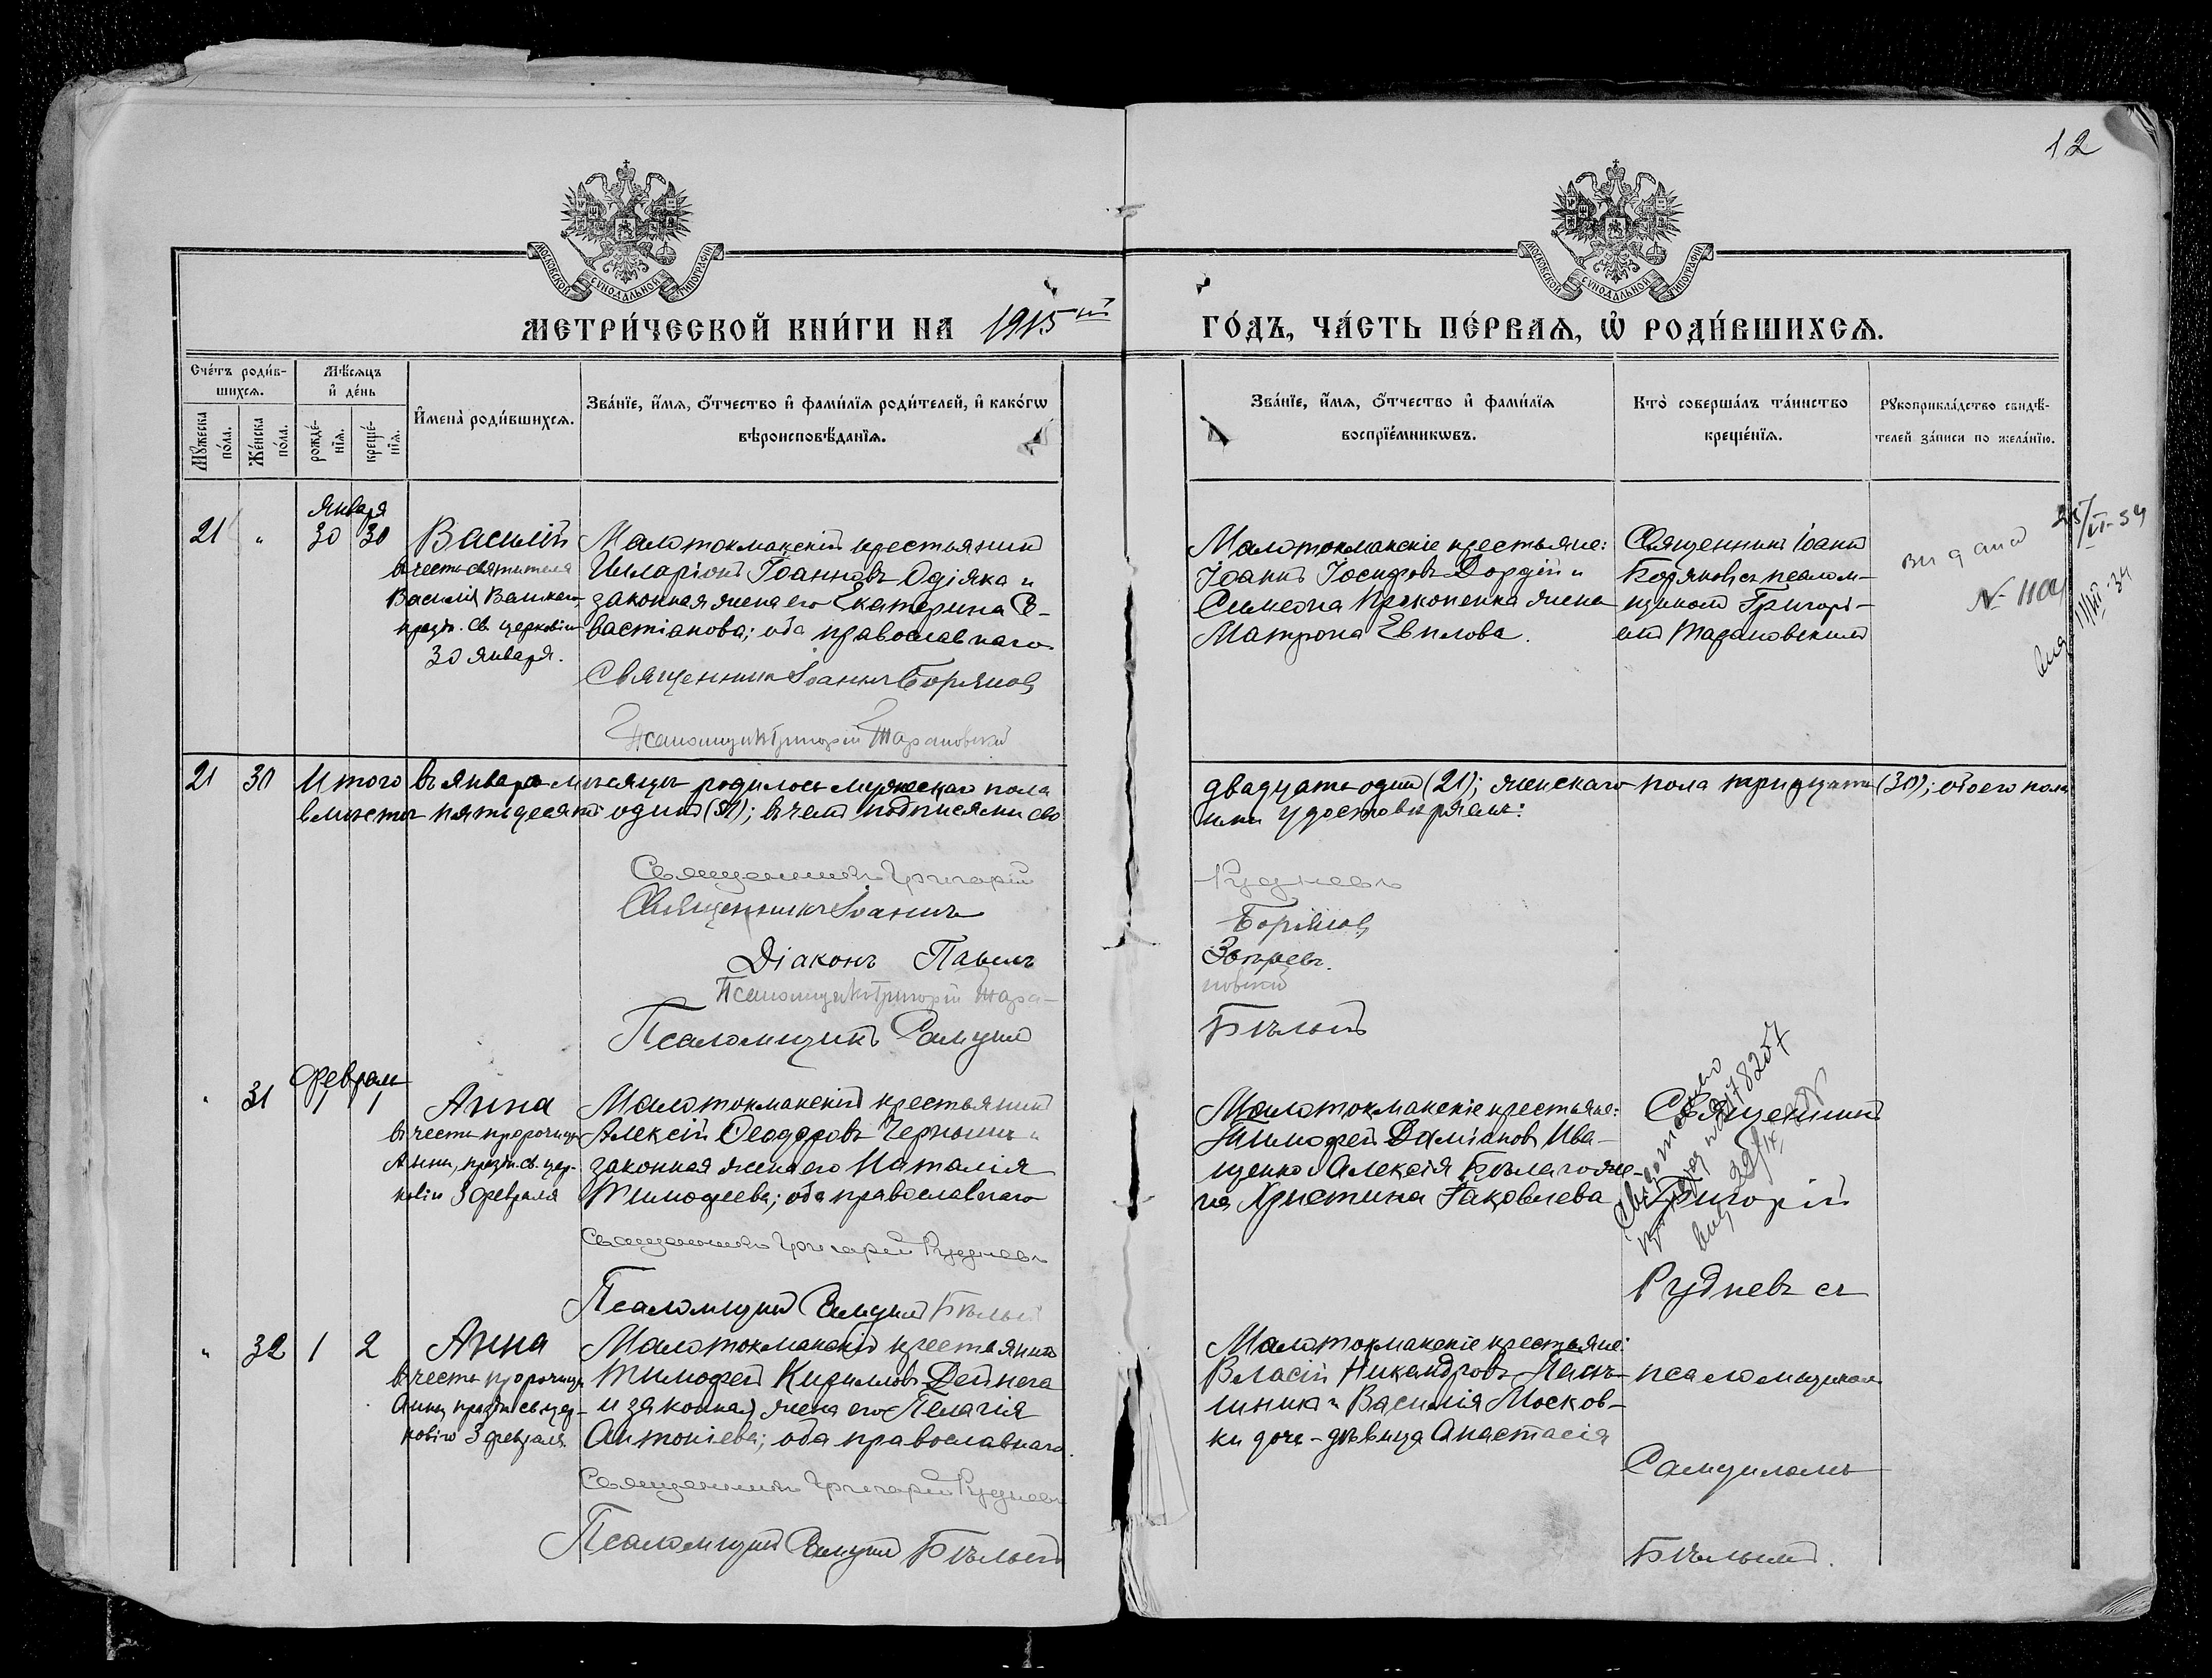 12
МОСКОВСКОЙ СѴНОДАЛЬНОЙ ТИПОГРАФІИ
МОСКОВСКОЙ СѴНОДАЛЬНОЙ ТИПОГРАФІИ
МЕТРИ́ЧЕСКОЙ КНИ́ГИ НА 1915 ий ГО́ДЪ, ЧА́СТЬ ПЕ́РВАѦ, Ѡ҆ РОДИ́ВШИХСѦ.
Сче́тъ роди́в-
шихсѧ.
Мꙋжеска по́ла.
Же́нска по́ла.
Мѣ́сѧцъ
и҆ де́нь
рожде́-
нїѧ.
креще́-
нїѧ.
И҆мена̀ роди́вшихсѧ.
Зва́нїе, и҆́мѧ, ѻ҆́тчество и҆ фами́лїѧ роди́телей, и҆ како́гѡ
вѣроисповѣ́данїѧ.
Зва́нїе, и҆́мѧ, ѻ҆́тчество и҆ фами́лїѧ
воспрїе́мникѡвъ.
Кто̀ соверша́лъ та́инство
креще́нїѧ.
Рꙋкоприкла́дство свидѣ́-
телей за́писи по жела́нїю.
Января
21 " 30 30
Василій
въ честь святителя
Василія Великаго,
празд. Св. церковію
30 января.
Малотокмакскій крестьянинъ
Илларіонъ Іоанновъ Одіяка и
законная жена его Екатерина Се-
вастіанова; оба православнаго
Священникъ Іоаннъ Боряновъ
Псаломщикъ Григорій Тарановскій
Малотокмакскіе крестьяне:
Іоаннъ Іосифовъ Дордій и
Симеона Прокопенка жена
Матрона Евплова.
Священникъ Іоаннъ
Боряновъ съ псалом-
щикомъ Григорі-
емъ Тарановскимъ
21 30 Итого въ январѣ мѣсяцѣ родилось мужескаго пола двадцать одинъ (21); женскаго пола тридцать (30); обоего пола
вмѣстѣ пятьдесятъ одинъ (51); въ чемъ подписями сво ими удостовѣряемъ:
Священникъ Григорій Рудневъ
Священникъ Іоаннъ Боряновъ
Діаконъ Павелъ Зоправъ.
Псаломщикъ Григорій Тара- новскій
Псаломщикъ Самуилъ Бѣлый
Февраля
" 31 1 1
Анна
въ честь пророчицы
Анны, празд. св. цер-
ковію 3 февраля
Малотокмакскій крестьянинъ
Алексій Ѳеодоровъ Чернышъ и
законная жена его Наталія
Тимоѳеева; оба православнаго
Священникъ Григорій Рудневъ
Псаломщикъ Самуилъ Бѣлый
Малотокмакскіе крестьяне:
Тимоѳей Даміановъ Ива-
щенко и Алексія Бѣлаго же-
на Христина Іаковлева
Священникъ
Григорій
Рудневъ съ
" 32 1 2
Анна
въ честь пророчицы
Анны празд. св. цер-
ковію 3 февраля
Малотокмакскій крестьянинъ
Тимоѳей Кирилловъ Дейнега
и законная жена его Пелагія
Антоніева; оба православнаго.
Священникъ Григорій Рудневъ
Псаломщикъ Самуилъ Бѣлый
Малотокмакскіе крестьяне:
Власій Никандровъ
и Василія Москов-
ки дочь-дѣвица Анастасія
псаломщикомъ
Самуиломъ
Бѣлымъ.